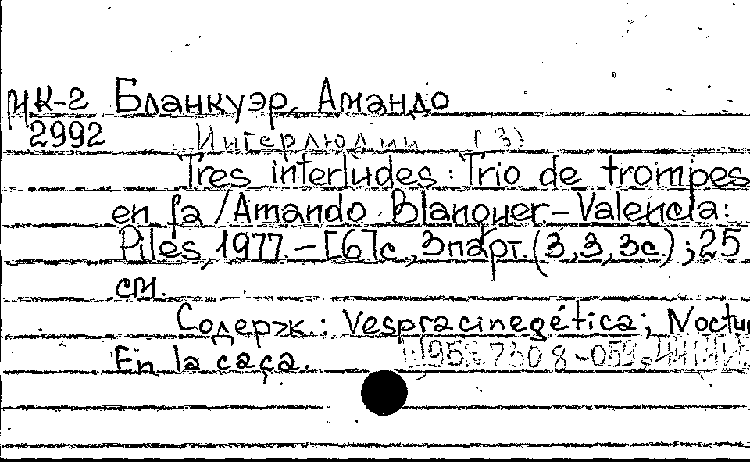 МК-2 Бланкуэр, Амандо
2992 Интерлюдии (3)
Tres interludes: Trio de trompes
en fa / Amando Blanquer - Valencia:
Piles, 1977. - [6] с., 3 парт. (3,3,3с); 25
см.
Содерж.: Vespra cinegética; Noctur
En la caça.